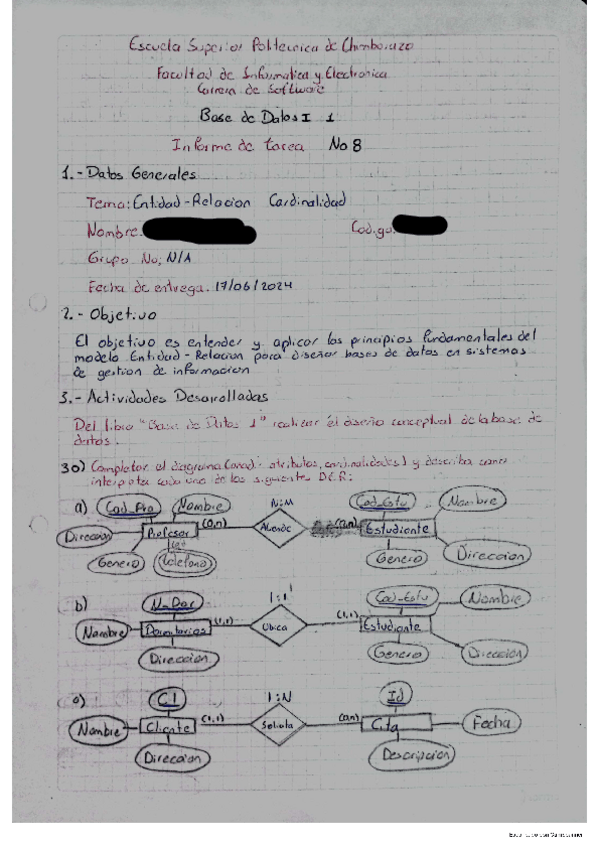 Escuela Superior Politecnica de Chimborazo
Facultad de Informatica y Electronica
Carrera de Software
Base de Datos I 1
Informe de tarea No 8
1.- Datos Generales
Tema: Entidad - Relacion Cardinalidad
Nombre: Codigo:
Grupo No; N/A
Fecha de entrega. 17/06/2024
2.- Objetivo
El objetivo es entender y aplicar los principios fundamentales del
modelo Entidad - Relacion para diseñar bases de datos en sistemas
de gestion de informacion
3.- Actividades Desarrolladas
Del libro "Base de Datos 1" realizar el diseño conceptual de la base de
datos.
30) Completar el diagrama (cardi- atributos, cardinalidades) y describa como
interpreta cada uno de los siguientes D.E.R:
a) Cod_Pro Nombre N:M Cod_Estu Nombre
Direccion Profesor (0,n) Atiende (0,n) Estudiante
Genero Telefono Genero Direccion
b) N_Dor 1:1 Cod_Estu Nombre
Nombre Dormitorios (1,1) Ubica (1,1) Estudiante
Direccion Genero Direccion
c) CI 1:N Id
Nombre Cliente (1,1) Solicita (0,n) Cita Fecha
Direccion Descripcion